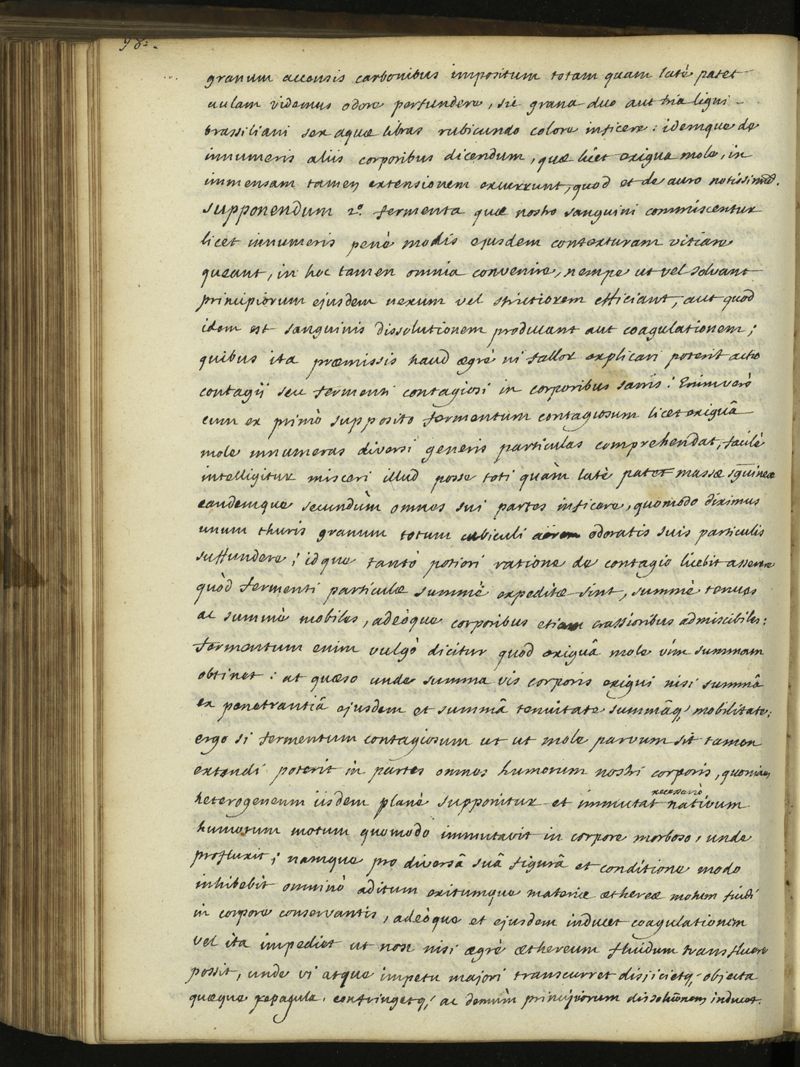 98.
granum accensis carbonibus impositum totam quam latè patet
aulam videmus odore perfundere, sic grana duo aut tria ligni
brassiliani sex aquæ libras rubicundo colore inficere: idemque de
innumeris aliis corporibus dicendum, quæ licet exigua mole, in
immensam tamen extensionem excurrunt, quod et de auro notissimũ.
Supponendum 2º. fermenta quæ nostro sanguini commiscentur
licet innumeris penè modis ejusdem contexturam vitiare
queant, in hoc tamen omnia convenire, nempe ut vel solvant
principiorum ejusdem nexum vel strictiorem efficiant, aut quod
idem est sanguinis dissolutionem producant aut coagulationem;
quibus ita præmissis haud ægrè ni fallor explicari poterit actio
contagij seu fermenti contagiosi in corporibus sanis: Enimverò
cum ex primò supposito fermentum contagiosum licet exiguâ
mole innumeras diversi generis particulas comprehendat, facilè
intelligitur misceri illud posse toti quàm latè patet massæ sg̃uineæ
eandemque secundùm omnes sui partes inficere, quomodo diximus
unum thuris granum totum cubiculi aërem odoratis suis particulis
suffundere; idque tantò potiori ratione de contagio licebit asserere
quòd fermenti particulæ summè expeditæ sint, summè tenues
ac summè mobiles, adeòque corporibus etiam crassioribus admiscibiles:
fermentum enim vulgò dicitur quod exiguâ mole vim summam
obtinet: at quæso unde summa vis corporis exigui nisi summâ
ex penetrantiâ ejusdem et summâ tenuitate summâq, mobilitate;
ergo si fermentum contagiosum ut ut mole parvum sit tamen
extendi poterit in partes omnes humorum nostri corporis, quoniam
heterogeneum iisdem planè supponitur et immutat necessariò nativum
humorum motum quomodo immutavit in corpore morboso, unde
profluxit; namque pro diversâ suâ figurâ et conditione modo
inhibebit omninò aditum exitumque materiæ æthereæ motum fluidi
in corpore conservantis, adeòque et ejusdem inducet coagulationem
vel ita impediet ut non nisi ægrè æthereum fluidum transfluere
possit, unde vi atque impetu majori transcurret disjicietq; objecta
quæque repagula, confringetq; ac demùm principiorum dissolutionem inducet.